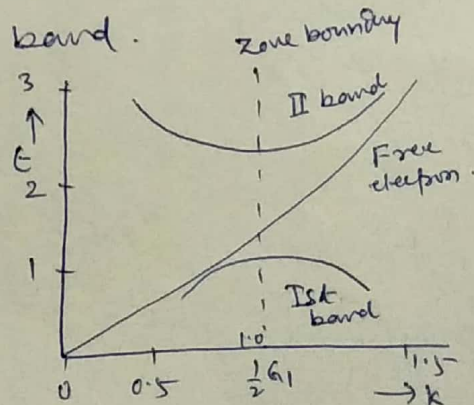 band.
Zone boundary
3
II band
E
Free
electron.
2
1
Ist
band
1.0
0 0.5 ½G₁ 1.5
→ k